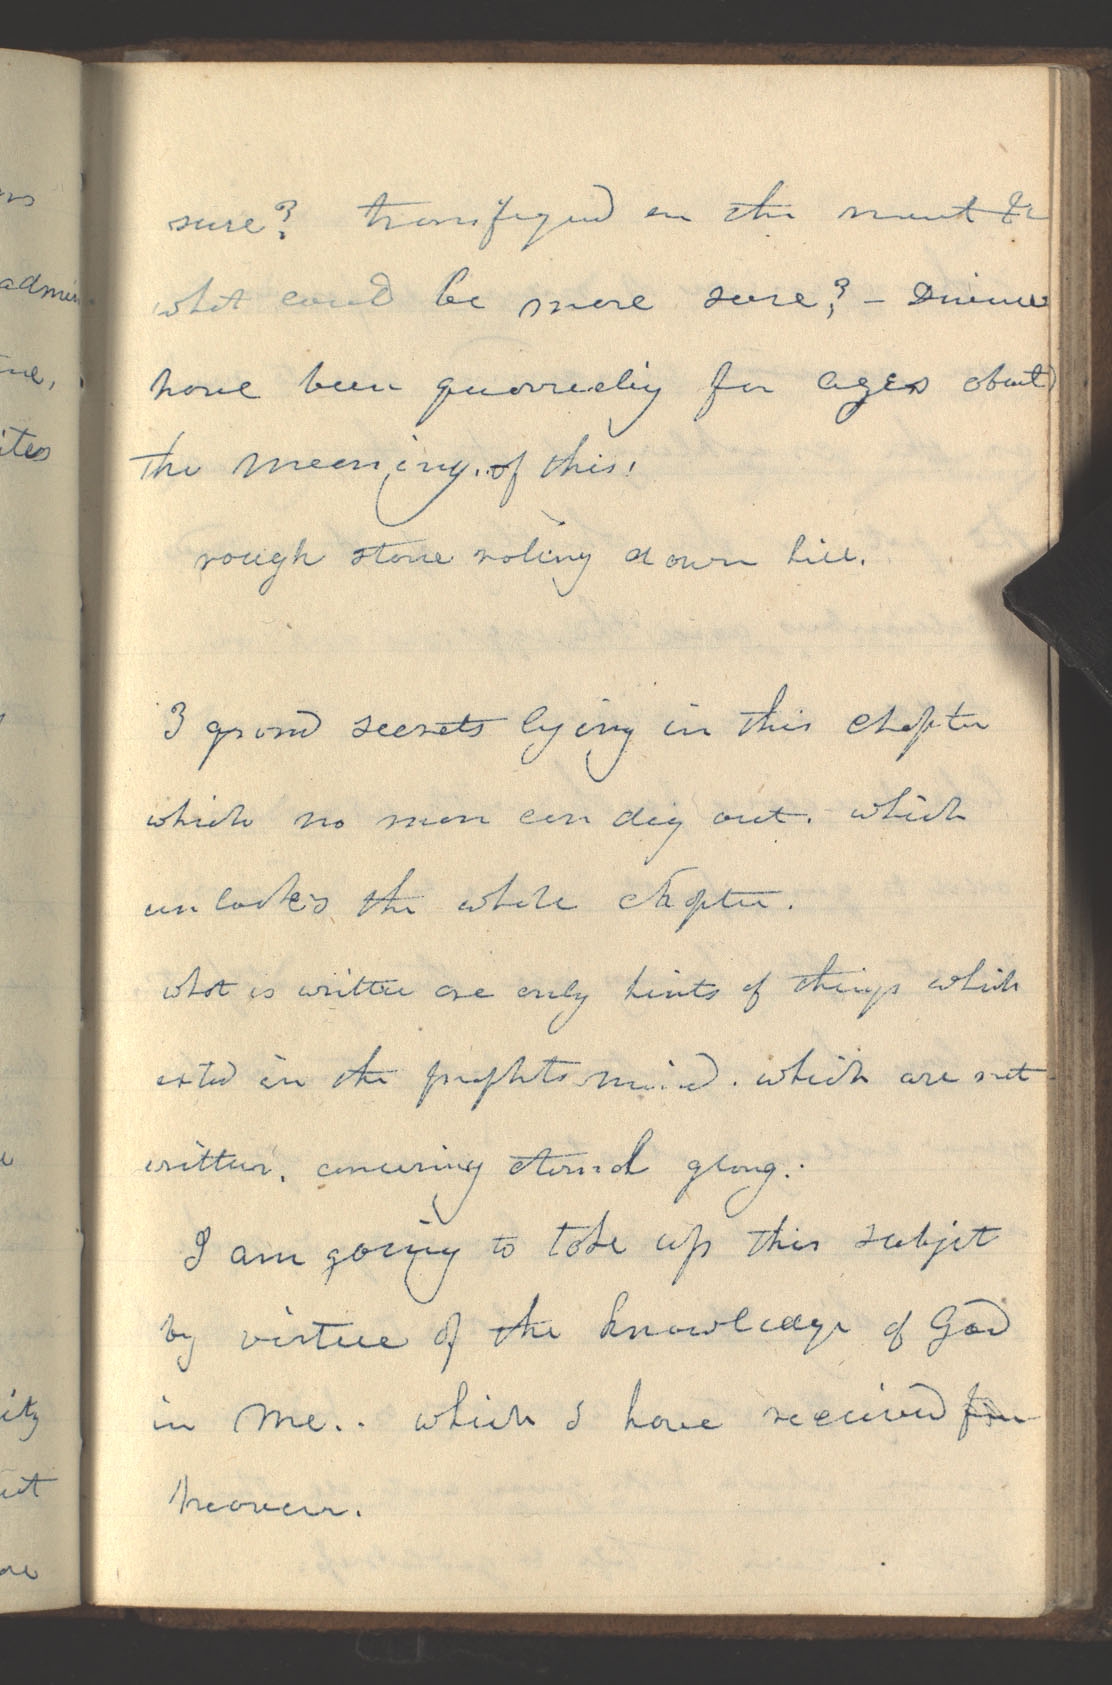 sure? transfigured on the mount &c
what could be more sure? – Divines
have been quarreling for ages about
the meaning. of this.
rough stone roling down hill.
3 grand secrets lying in this chapter
which no man can dig out. which
unlocks the whole chapter.
what is written are only hints of things which
exted in the prophets mind. which are not
written. concering eternal glory.
I am going to take up this subjet
by virtue of the knowledge of God
in me.. which I have received from
heaven.